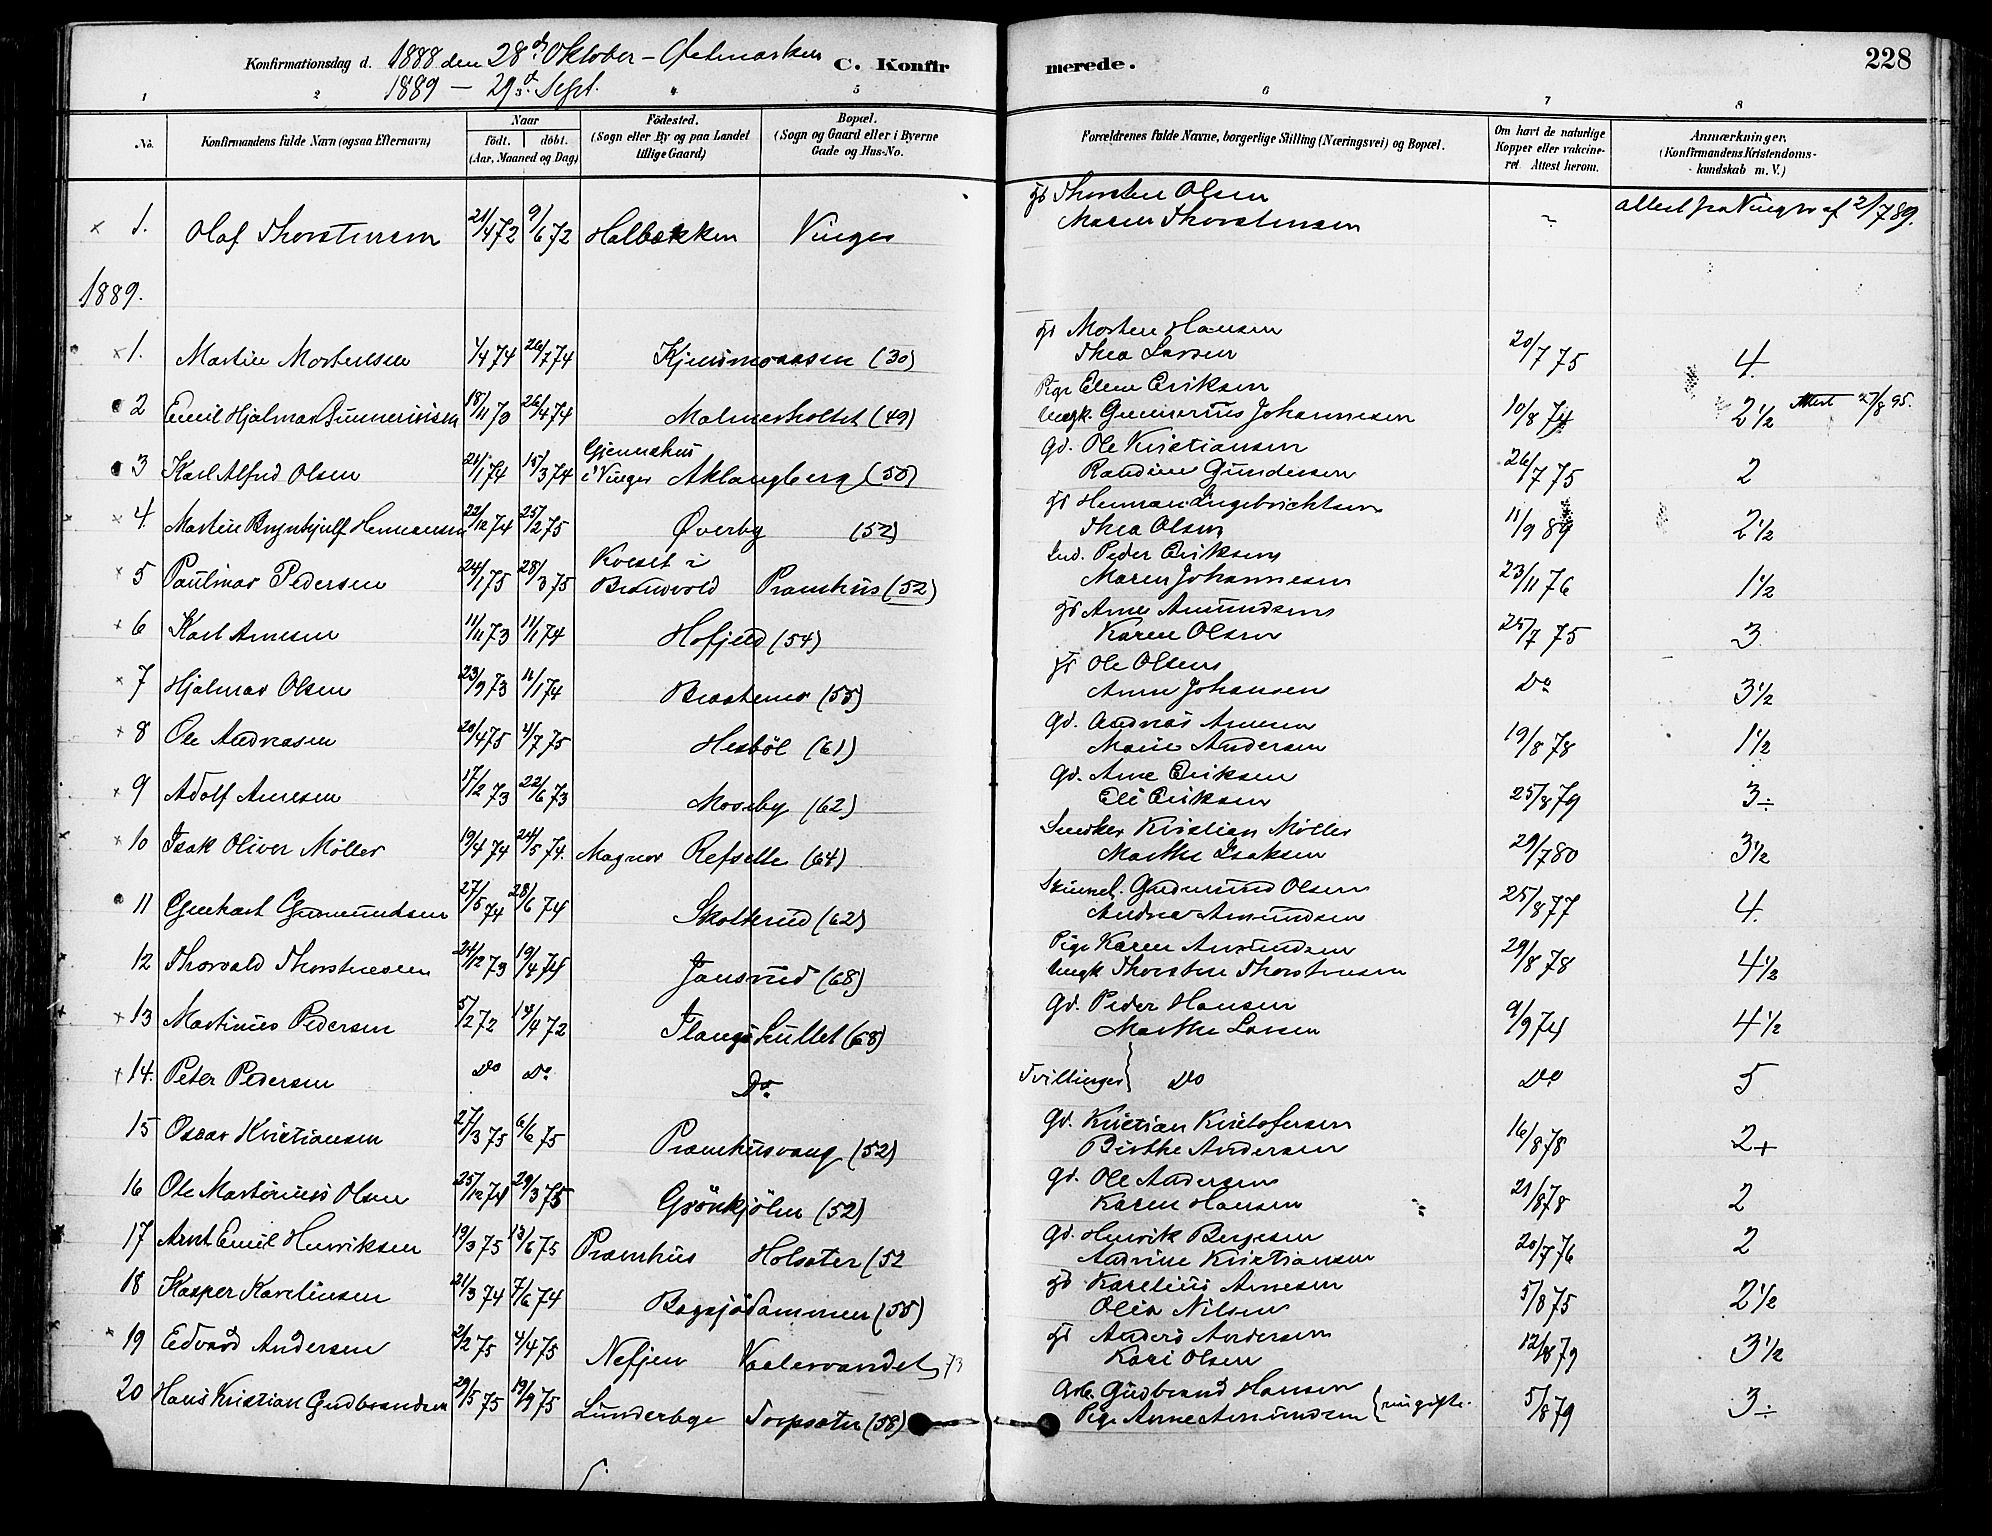 Konfirmationsdag d. 1888 den 28de Oktober – Østmarken C. Konfir merede. 228
1889 – 29de Sept.
1 2 4 5 6 7 8
No. Konfirmandens fulde Navn (ogsaa Efternavn) Naar født. døbt. (Aar, Maaned og Dag) Födested. (Sogn eller By og paa Landet tillige Gaard) Bopæl. (Sogn og Gaard eller i Byerne Gade og Hus-No. Forældrenes fulde Navne, borgerlige Stilling (Næringsvei) og Bopæl. Om havt de naturlige Kopper eller vakcineret. Attest herom. Anmærkninger, (Konfirmandens Kristendomskundskab m. V.)
× 1. Olaf Thorstensen 21/4 72 9/6 72 Holbækken Vinger Thorsten Olsen Maren Thorstensen ~ Attest fra Vinger af 2/7 89.
1889.
× 1. Martin Mortensen 1/4 74 26/7 74 Kjensmoaasen (30) Morten Hansen Thea Larsen 20/7 75 4.
2 Emil Hjalmar Gunneriussen 18/11 73 26/4 74 Malmerholtet (49) Pige Elene Eriksen Ungk. Gunnerius Johannesen 10/8 74 2½ Attest 27/8 95.
3 Karl Alfred Olsen 21/1 74 15/3 74 Gjennehus i Vinger Aklangberg (50) Gd. Ole Kristiansen Randine Gundersen 26/7 75 2
× 4. Martin Brynhjulf Hermansen 22/12 74 25/2 75 Øverby (52) Herman Ingebrichtsen Thea Olsen 11/9 89 2½
× 5 Paulinar Pedersen 24/1 75 28/3 75 Kveset i Brandvold Pramhus (52) Ind. Peder Eriksen Maren Johannesen 23/11 76 1½
× 6 Karl Arnesen 11/11 73 11/1 74 Hofjeld (54) Arne Amundsen Karen Olsen 25/7 75 3
× 7 Hjalmar Olsen 23/9 73 11/1 74 Braatemo (55) Ole Olsen Anne Johansen Do 3½
× 8 Ole Andreasen 20/4 75 4/7 75 Hesböl (61) Gd. Andreas Arnesen Marie Andersen 19/8 78 1½
× 9 Adolf Arnesen 17/2 73 22/6 73 Moseby (62) Gd. Arne Eriksen Eli Eriksen 25/8 79 3÷
× 10 Isak Oliver Möller 19/4 74 24/5 74. Magnor Refselle (64) Snedker Kristian Möller Marthe Isaksen 29/7 80 3½
11 Gerhart Gudmundsen 27/5 74 28/6 74 Skotterud (62) Gudmund Olsen Andrea Amundsen 25/8 77 4.
12 Thorvald Thorstensen 24/12 73 19/4 74 Jansrud (68) Pige Karen Amundsen Ungk Thorsten Thorstensen 29/8 78 4½
× 13 Martinus Pedersen 5/2 72 14/4 72 Flangshullet (68) Gd. Peder Hansen Marthe Larsen 9/9 74 4½
× 14. Peter Pedersen Do Do Do Tvillinger Do Do 5
15 Oscar Kristiansen 27/3 75 6/6 75 Pramhusvang (52) Gd. Kristian Kristofersen Birthe Andersen 16/8 78 2+
16 Ole Martinius Olsen 25/12 74 29/3 75 Grönkjölen (52) Gd. Ole Andersen Karen Hansen 21/8 78 2
17 Arnt Emil Henriksen 19/3 75 13/6 75 Pramhus Holsæter (52 Gd. Henrik Bergesen Andrine Kristiansen 20/7 76 2
18 Kasper Karelinsen 21/3 74 7/6 74 Bogsjödammen (58) Karelius Arnesen Olea Nilsen 5/8 75 2½
× 19 Edvard Andersen 2/2 75 4/4 75 Nefjen Vaalervandet 73 Anders Andersen Kari Olsen 12/8 79 3½
20 Hans Kristian Gudbrandsen 29/5 75 19/9 75 Lunderbye Torpsæter (58) Arb. Gudbrand Hansen Pige Anne Amundsen } ungifte. 5/8 79 3÷